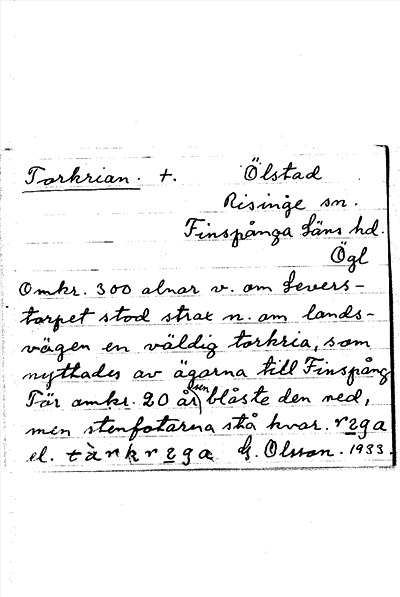 Torkrian. +. Ölstad
Risinge sn.
Finspånga läns hd.
Ögl
Omkr. 300 alnar v. om Severs-
torpet stod strax n. om lands-
vägen en väldig torkria, som
nyttades av ägarna till Finspång
För omkr. 20 år sen blåste den ned,
men stenfotarna stå kvar.
el. G. Olsson. 1933.